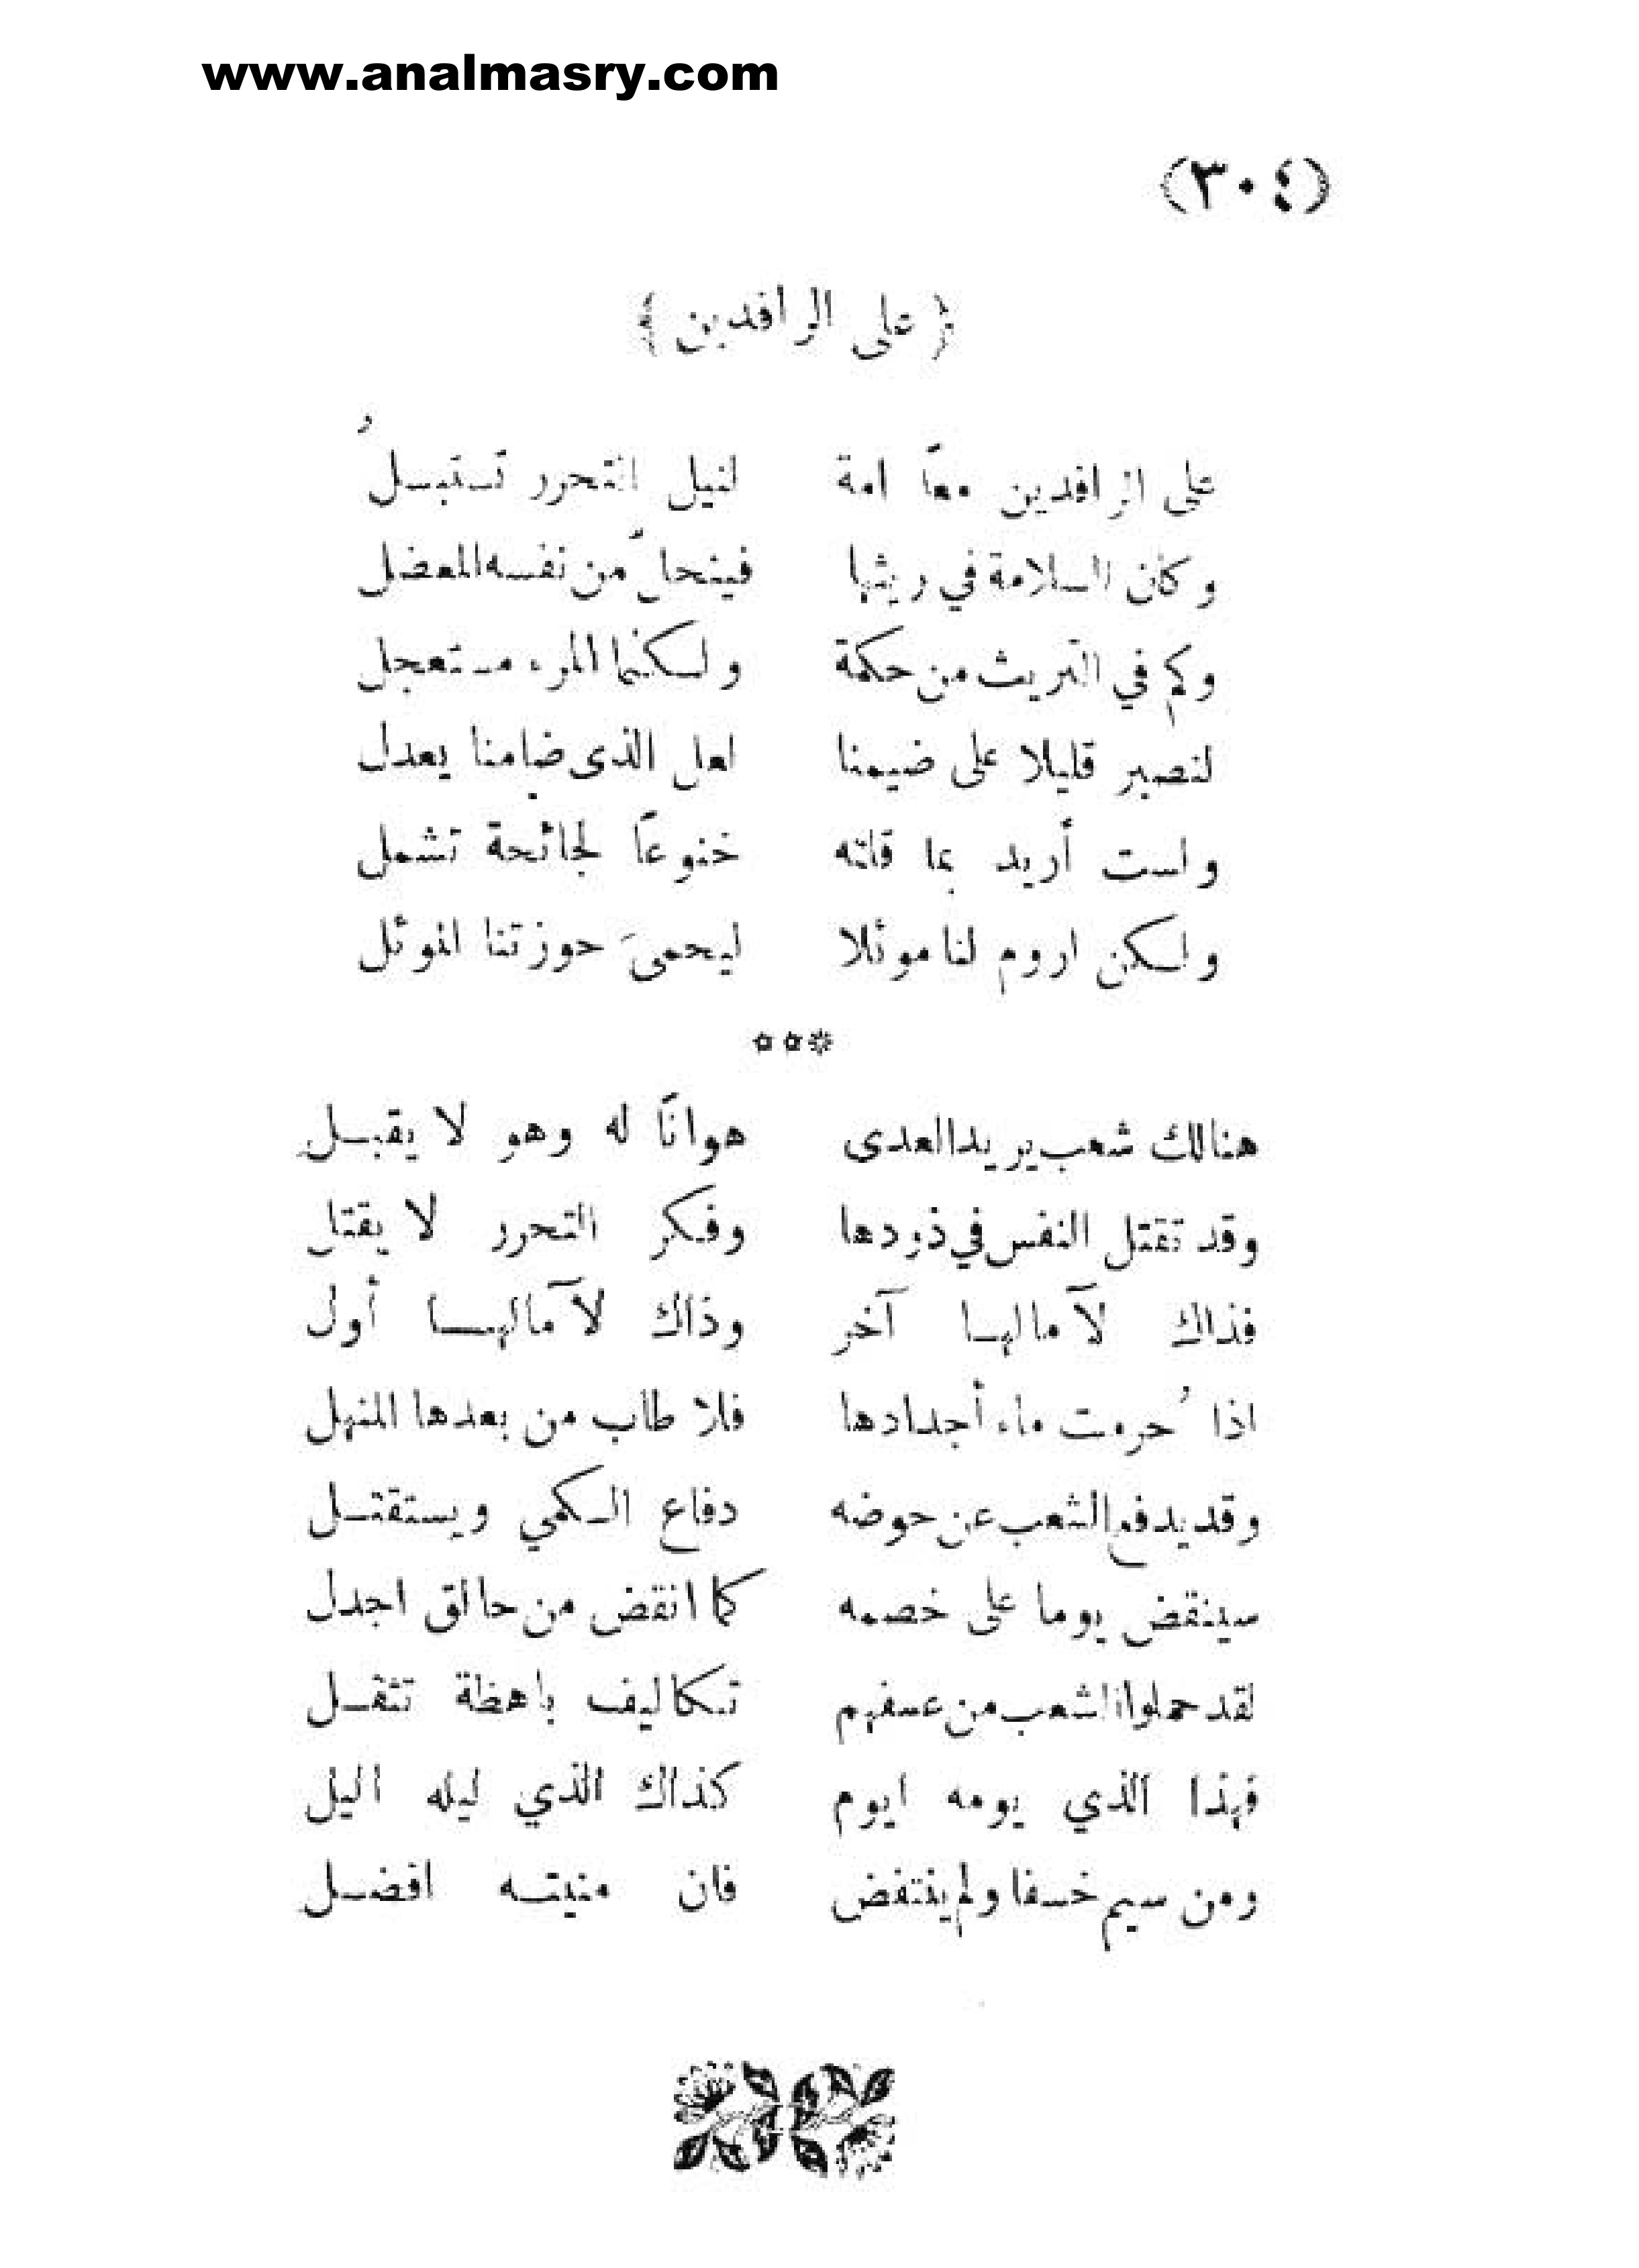 www.analmasry.com
(٣٠٤)
﴿ على الرافدين ﴾
على الرافدين معاً امة لنيل التحرر تستبسلُ
وكان السلامة في ريثها فينحلّ من نفسه المعضل
وكم في التريث من حكمة ولكنما المرء مستعجل
لنصبر قليلا على ضيمنا لعل الذى ضامنا يعدل
ولست أريد بما قلته خنوعاً لجائحة تشمل
ولكن اروم لنا موئلا ليحمىَ حوزتنا الموئل
***
هنالك شعب يريد العدى هواناً له وهو لا يقبل
وقد تقتل النفس في ذودها وفكر التحرر لا يقتل
فذاك لآمالها آخر وذاك لآمالها أول
اذا حُرمت ماء أجدادها فلا طاب من بعدها المنهل
وقد يدفع الشعب عن حوضه دفاع الكمي ويستقتل
سينقض يوما على خصمه كما انقض من حالق اجدل
لقد حملوا الشعب من عسفهم تكاليف باهظة تثقل
فهذا الذي يومه ايوم كذاك الذي ليله اليل
ومن سيم خسفا ولم ينتفض فان منيته افضل